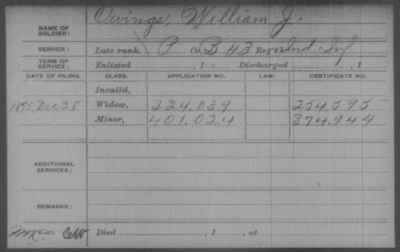 NAME OF SOLDIER: Owings, William J.
SERVICE: Late rank, P Co. B 43 Reg't Ind. Inf
TERM OF SERVICE: Enlisted , 1 Discharged , 1
DATE OF FILING. CLASS. APPLICATION NO. LAW. CERTIFICATE NO.
Invalid,
1875, Dec 28 Widow, 224,039 254,595
Minor, 401,024 374,944
ADDITIONAL SERVICES:
REMARKS:
C&W Died , 1 , at